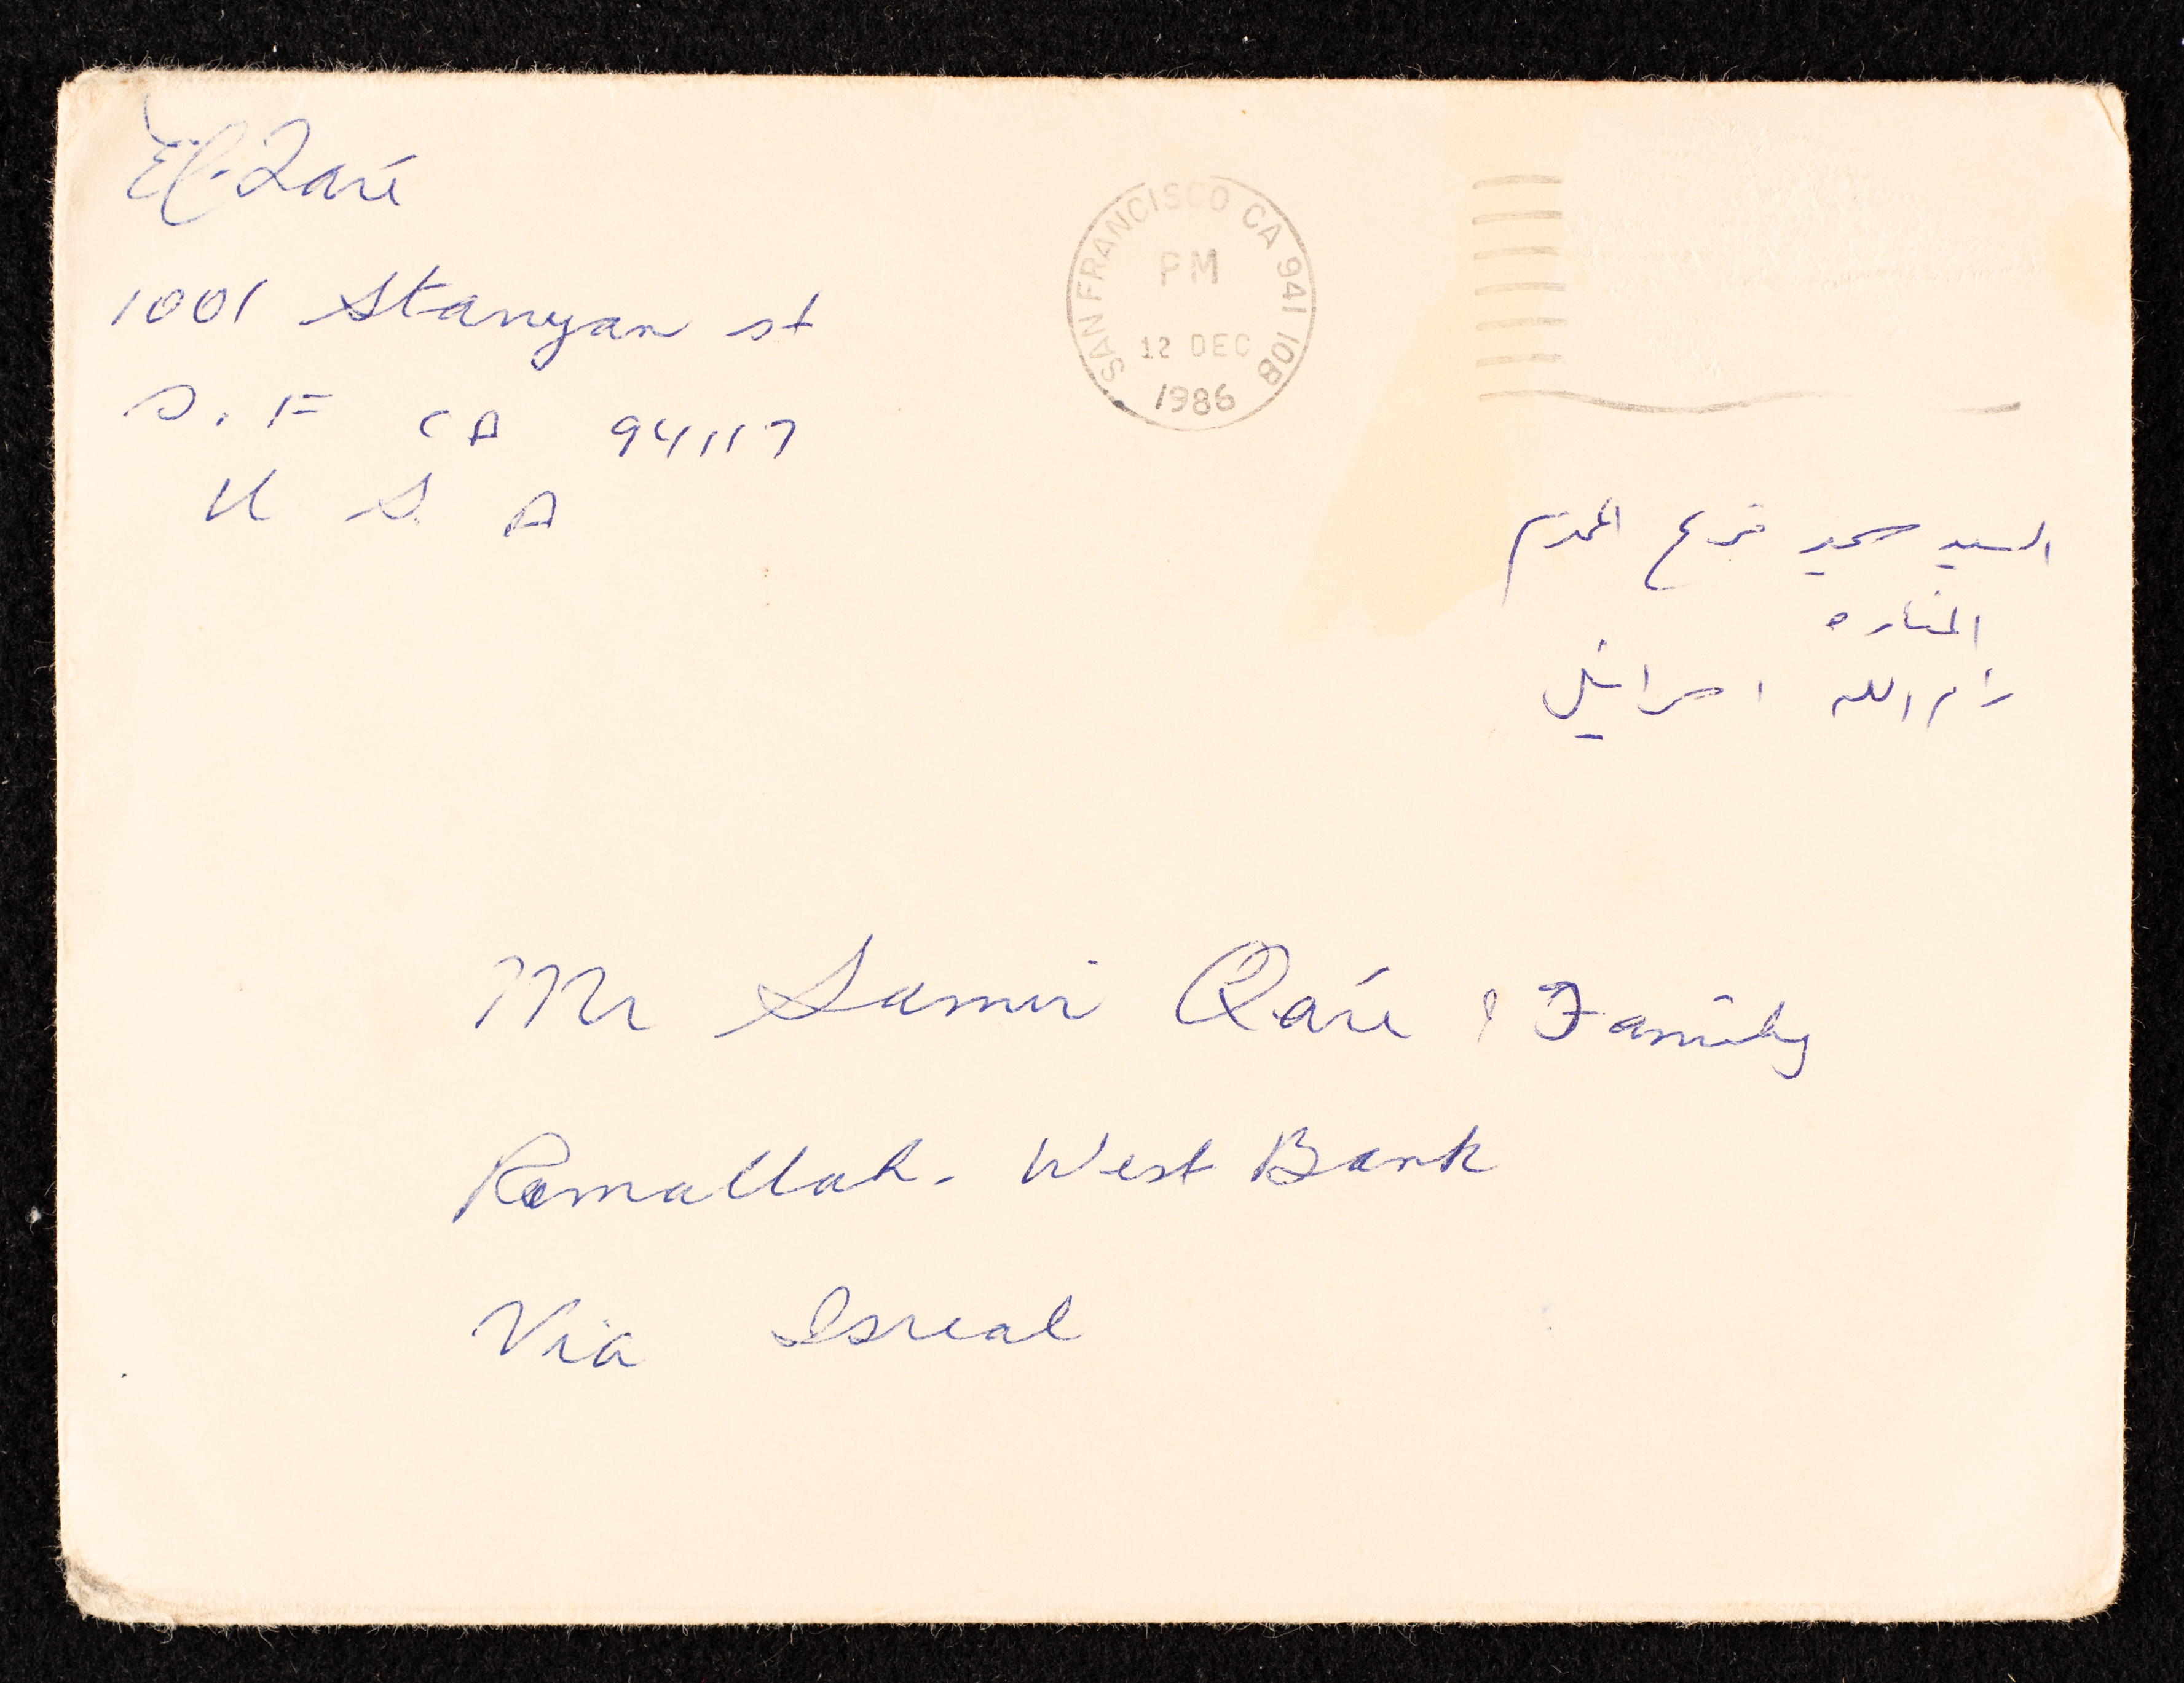 El-Qare
1001 Stanyan st
S. F CA 94117
U S A
SAN FRANCISCO CA 941 10B
PM
12 DEC
1986
السيد المحترم
المناره
رام الله اسرائيل
Mr Samir Qare & Family
Ramallah. West Bank
Via Isreal